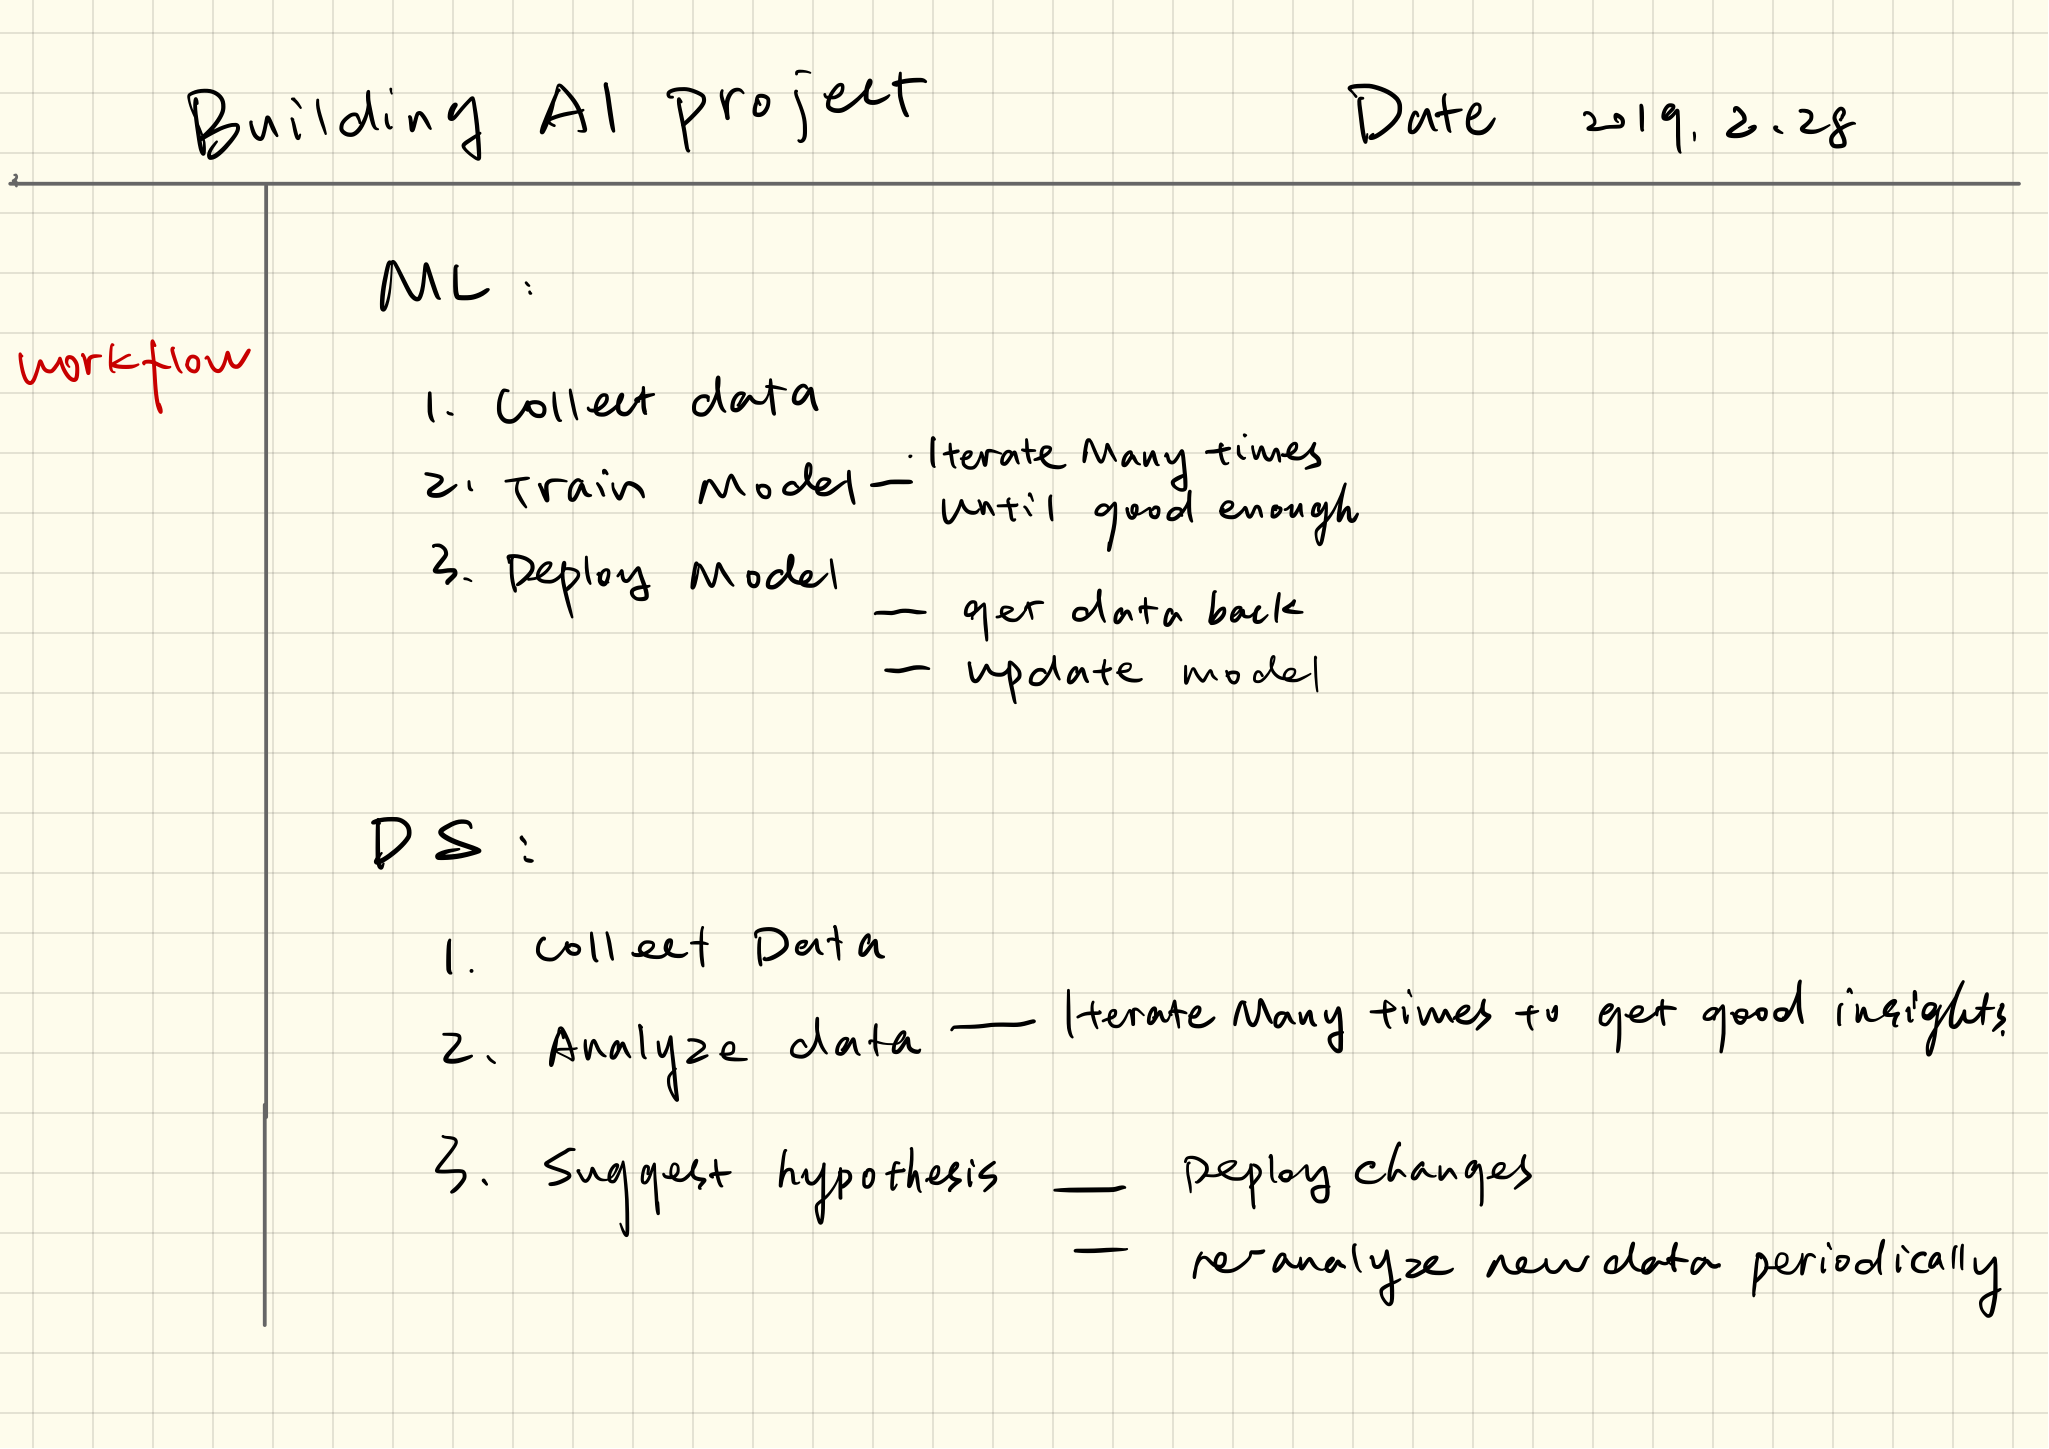 Building AI project Date 2019.2.28
ML:
workflow
1. Collect data
2. Train Model — Iterate Many times
until good enough
3. Deploy Model
— get data back
— update model
DS:
1. Collect Data
2. Analyze data — Iterate Many times to get good insights
3. Suggest hypothesis — Deploy changes
— re-analyze new data periodically